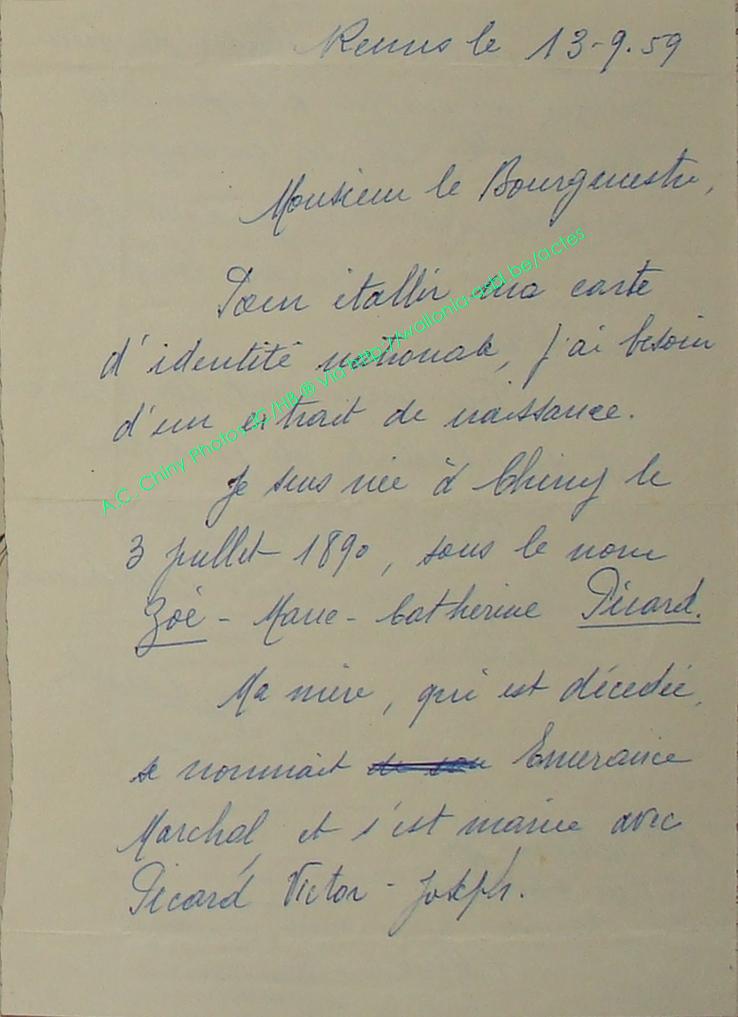 Reims le 13-9.59
Monsieur le Bourgmestre,
Pour établir ma carte
d'identité nationale, j'ai besoin
d'un extrait de naissance.
Je suis née à Chiny le
3 juillet 1890, sous le nom
Zoé - Marie - Catherine Picard.
Ma mère, qui est décédée,
se nommait Emerance
Marchal, et s'est mariée avec
Picard Victor - Joseph.
A.C. Chiny Photos JC/HB ® via http://wallonia-asbl.be/actes